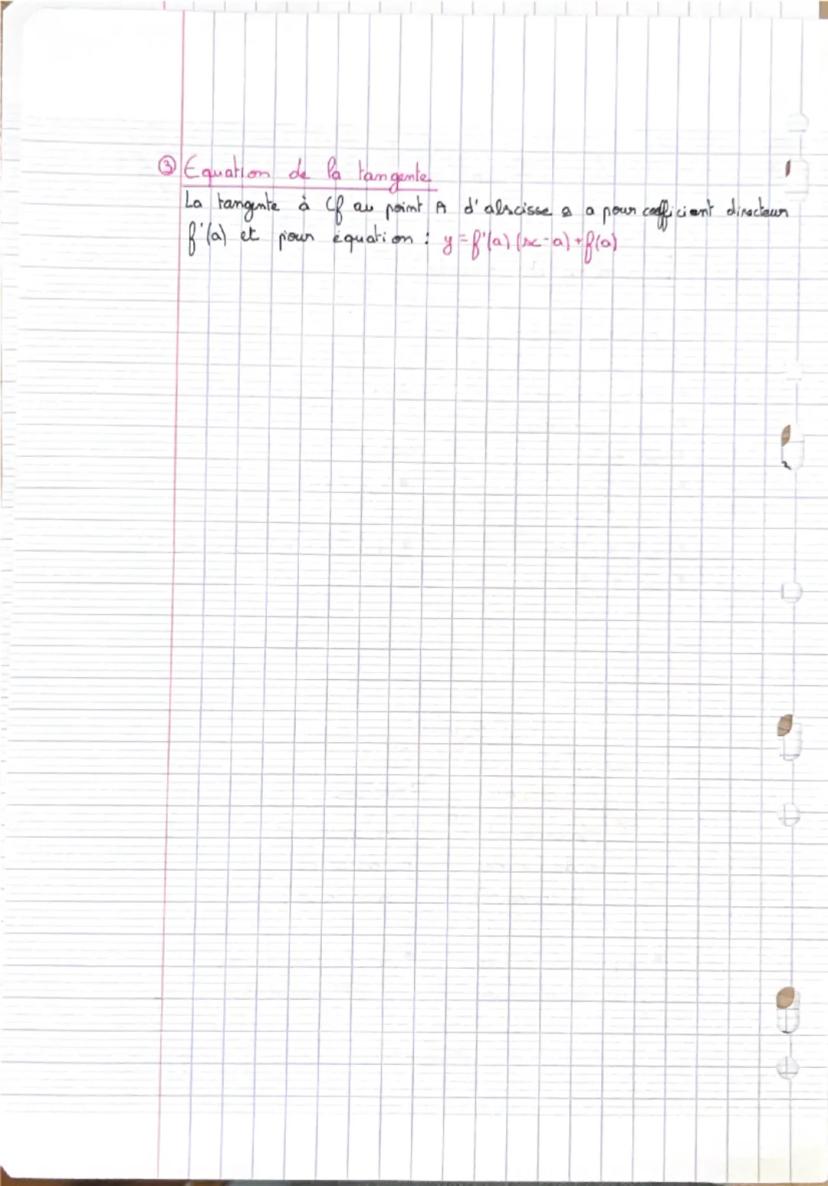 ③ Equation de la tangente
La tangente à Cf au point A d'abscisse a a pour coefficient directeur
f'(a) et pour équation : y = f'(a) (x-a) + f(a)